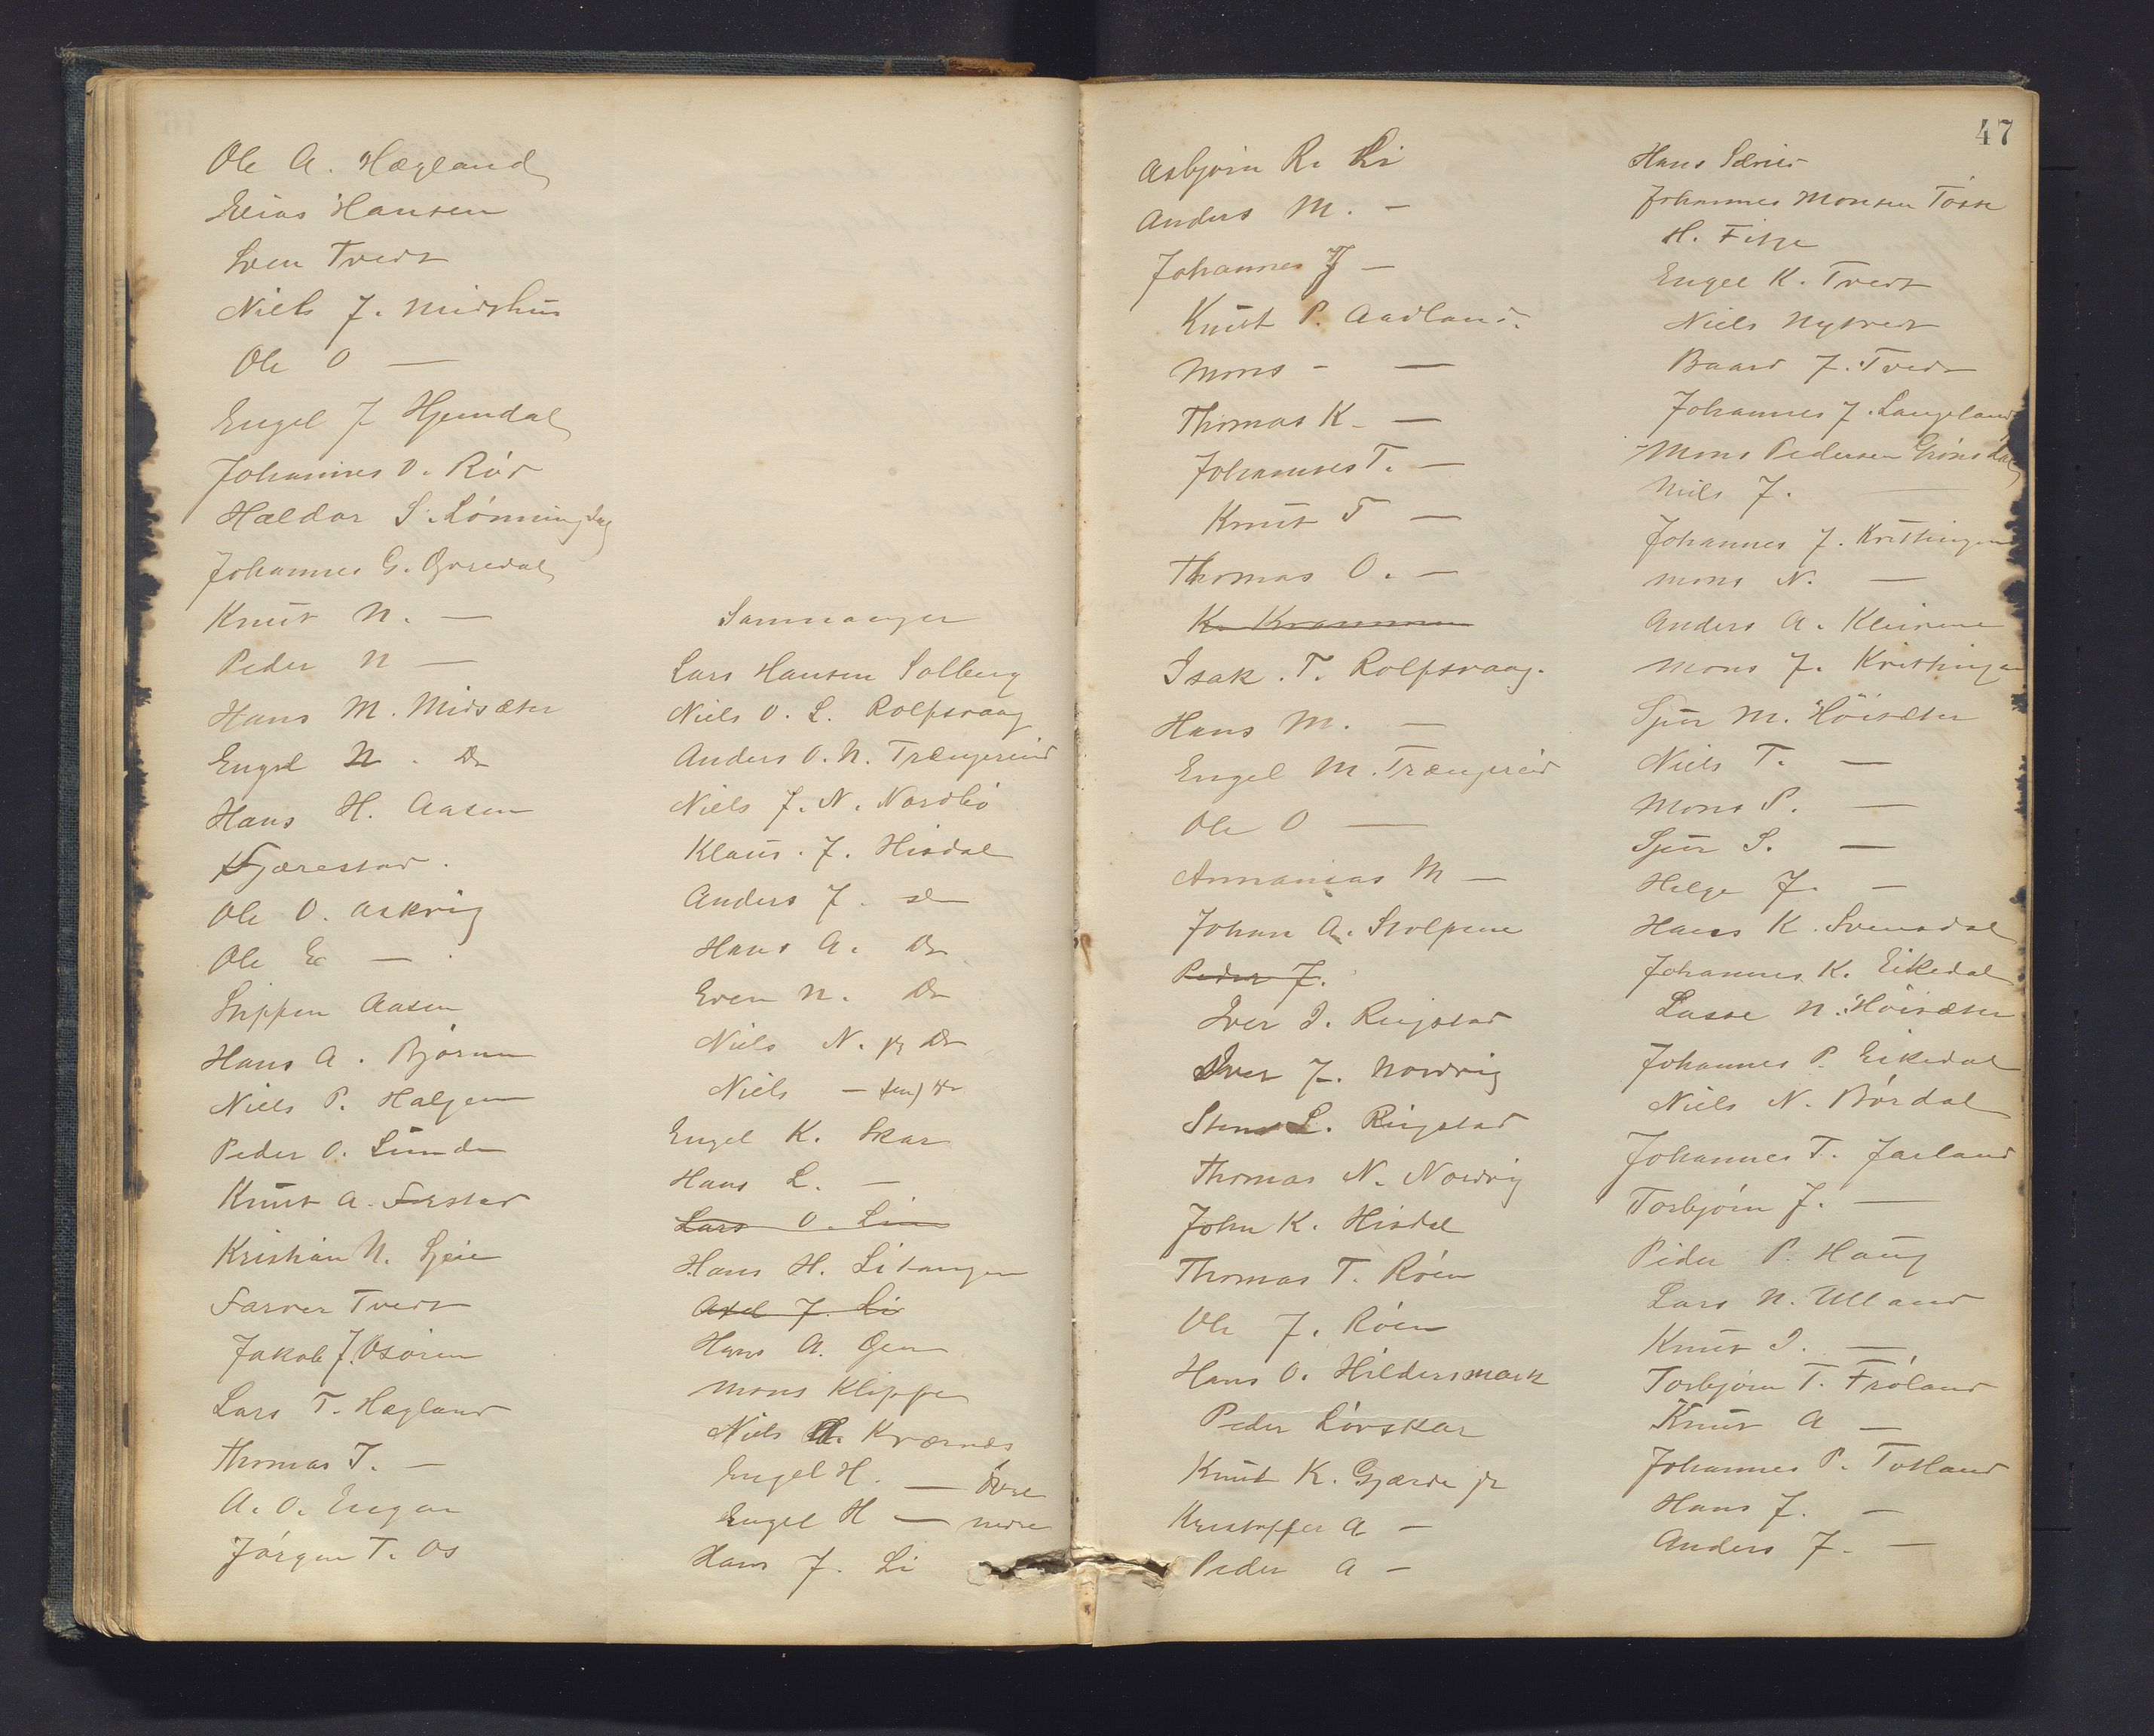 Ole A. Hægland
Elias Hansen
Sven Tvedt
Niels J. Midthus
Ole O —
Engel J Hjemdal
Johannes O. Röd
Haldor S. Lönningdal
Johannes G. Övredal
Knut N. —
Peder N —
Hans M. Midsæter
Engel N. Do
Hans H. Aasen
Fjærestad.
Ole O. Askvig
Ole E —
Aasen
Hans A. Björnen
Niels P. Halgen
Peder O. Lunde
Knut A.
Kristian N. Gjeie
Tvedt
Jakob J. Osören
Lars T. Hægland
Thomas T. —
A. O.
Jörgen T. Os
Samnanger
Lars Hansen Solberg
Niels O. L. Rolfsvaag
Anders O. N. Trængereid
Niels J. N. Nordbö
Klaus. J. Hisdal
Anders J. do
Hans A. Do
Even N. Do
Niels N. Do
Niels —
Engel K. Skar
Hans L. —
Lars O.
Hans H. Litangen
Axel J. Li
Hans A. Öen
Mons Klippen
Niels A. Kværnes
Engel H. — övre
Engel H — nedre
Hans J. Li
47
Asbjörn R. Li
Anders M. —
Johannes J —
Knut P. Aadland.
Mons - —
Thomas K. —
Johannes T. —
Knut T —
Thomas O. —
K.
Isak. T. Rolfsvaag.
Hans M. —
Engel M. Trængereid
Ole O —
Annanias M —
Johan A. Stolpene
Peder J.
Iver I. Ringstad
Iver J. Nordvig
Sten L. Ringstad
Thomas N. Nordvig
John K. Hisdal
Thomas T. Röen
Ole J. Röen
Hans O. Hildersmark
Peder Lövskar
Knut K. Gjærde jr
Kristoffer A —
Peder A —
Hans
Johannes Monsen Tösse
H. Fitje
Engel K. Tvedt
Niels Nytvedt
Baard J. Tvedt
Johannes J. Langeland
Mons Pedersen Grönsdal
Niels J. —
Johannes J. Kristhingen
Mons N. —
Anders A. Kleivene
Mons J. Kristhingen
Sjur M. Höisæter
Niels T. —
Mons S. —
Sjur S. —
Helge J. —
Hans K. Svensdal
Johannes K. Eikedal
Lasse N. Höisæter
Johannes P. Eikedal
Niels N. Bördal
Johannes T. Jarland
Torbjörn J. —
Peder P. Haug
Lars N. Ulland
Knut I. —
Torbjörn T. Fröland
Knut A —
Johannes P. Totland
Hans J. —
Anders J. —